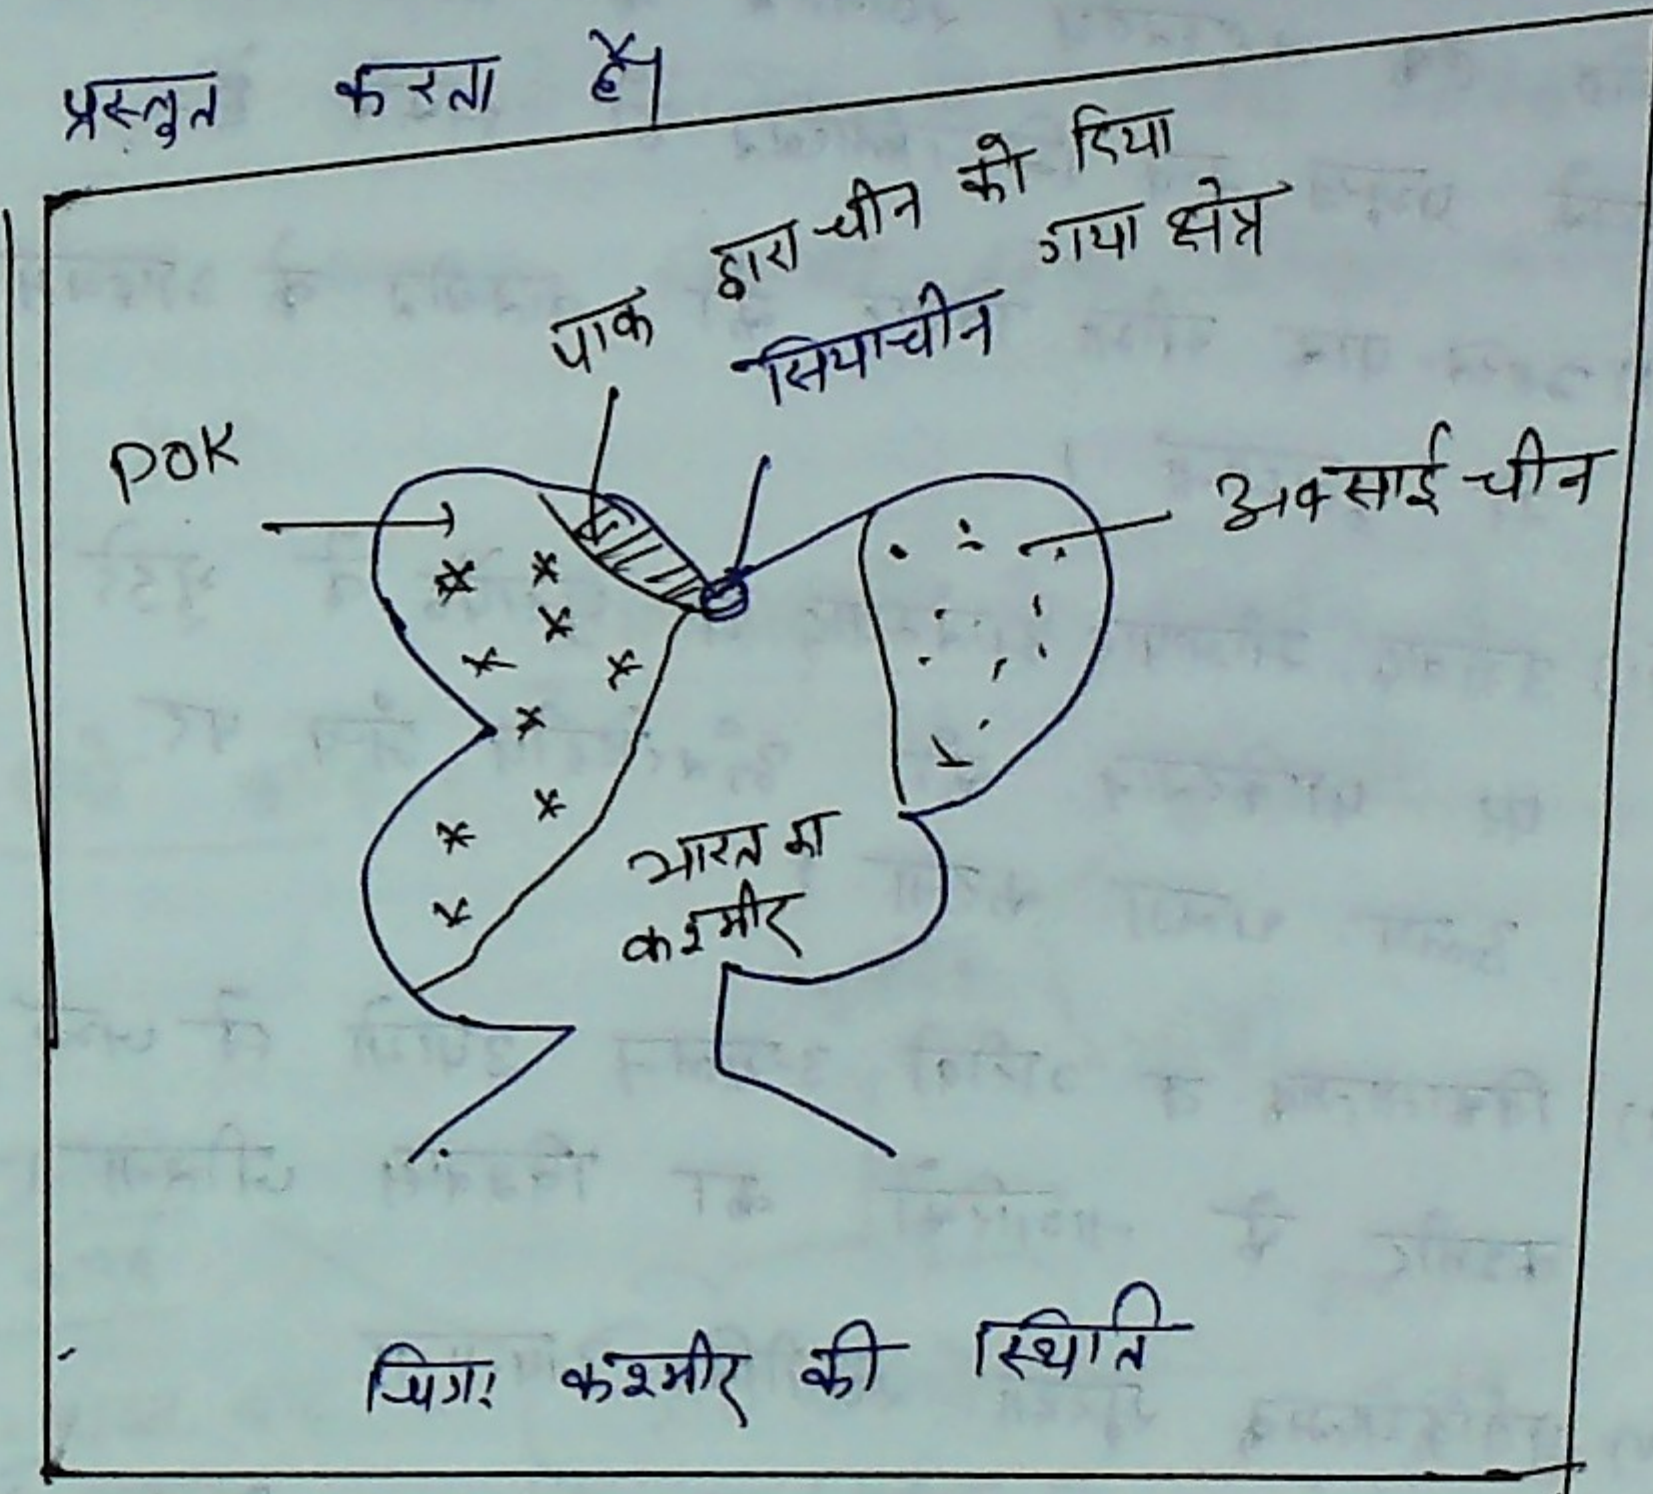 प्रस्तुत करता है।
पाक द्वारा चीन को दिया
गया क्षेत्र
सियाचीन
POK
अक्साई चीन
भारत का
कश्मीर
कश्मीर की स्थिति